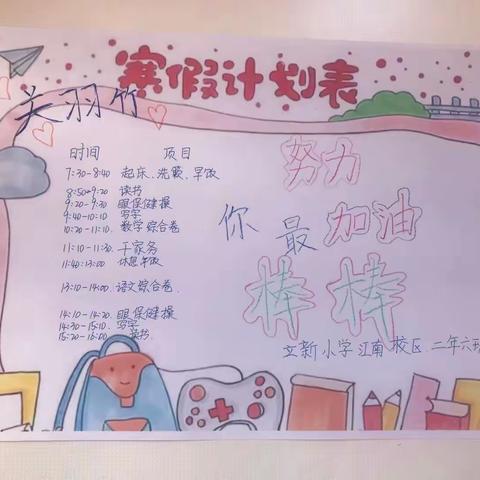 寒假计划表
关羽竹
时间 项目
7:30-8:40 起床、洗漱、早饭
8:50-9:20 读书
9:20-9:30 眼保健操
9:40-10:10 写字
10:20-11:10. 数学综合卷
11:10-11:30. 干家务
11:40-13:00 休息午饭
13:10-14:00. 语文综合卷
14:10-14:20. 眼保健操
14:30-15:10. 写字
15:20-16:00 读书
努力
加油
你最
棒棒
立新小学江南校区.二年六班